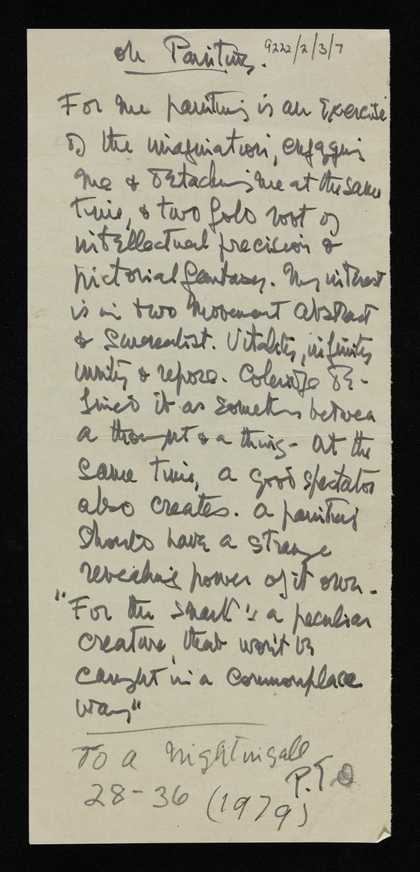 on Painting. 9222/2/3/7
For me painting is an Exercise
of the imagination, engaging
me & detaching me at the same
time, & two fold root of
intellectual precision &
pictorial fantasy. My interest
is in two movement abstract
& Surrealist. Vitality, infinity
unity & repose. Coleridge de-
fined it as something between
a thought & a thing - at the
same time, a good spectator
also creates. a painting
should have a strange
revealing power of it own.
"For the Snark's a peculiar
creature, that won't be
caught in a commonplace
way"
To a Nightingale
P.T.O
28-36 (1979)